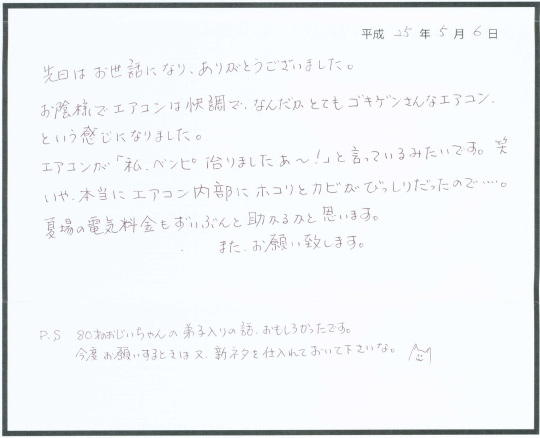 平成 25 年 5 月 6 日
先日は お世話になり、ありがとうございました。
お陰様で エアコンは 快調で、なんだか とても ゴキゲンさんなエアコン、
という感じになりました。
エアコンが「私、ベンピ 治りましたぁ〜!」と言っているみたいです。笑
いや、本当に エアコン内部に ホコリと カビが びっしりだったので‥‥。
夏場の電気料金も ずいぶんと 助かるかと 思います。
また、お願い致します。
P.S 80才のおじいちゃんの 弟子入りの話、おもしろかったです。
今度 お願いするときは 又、新ネタを 仕入れておいて下さいな。